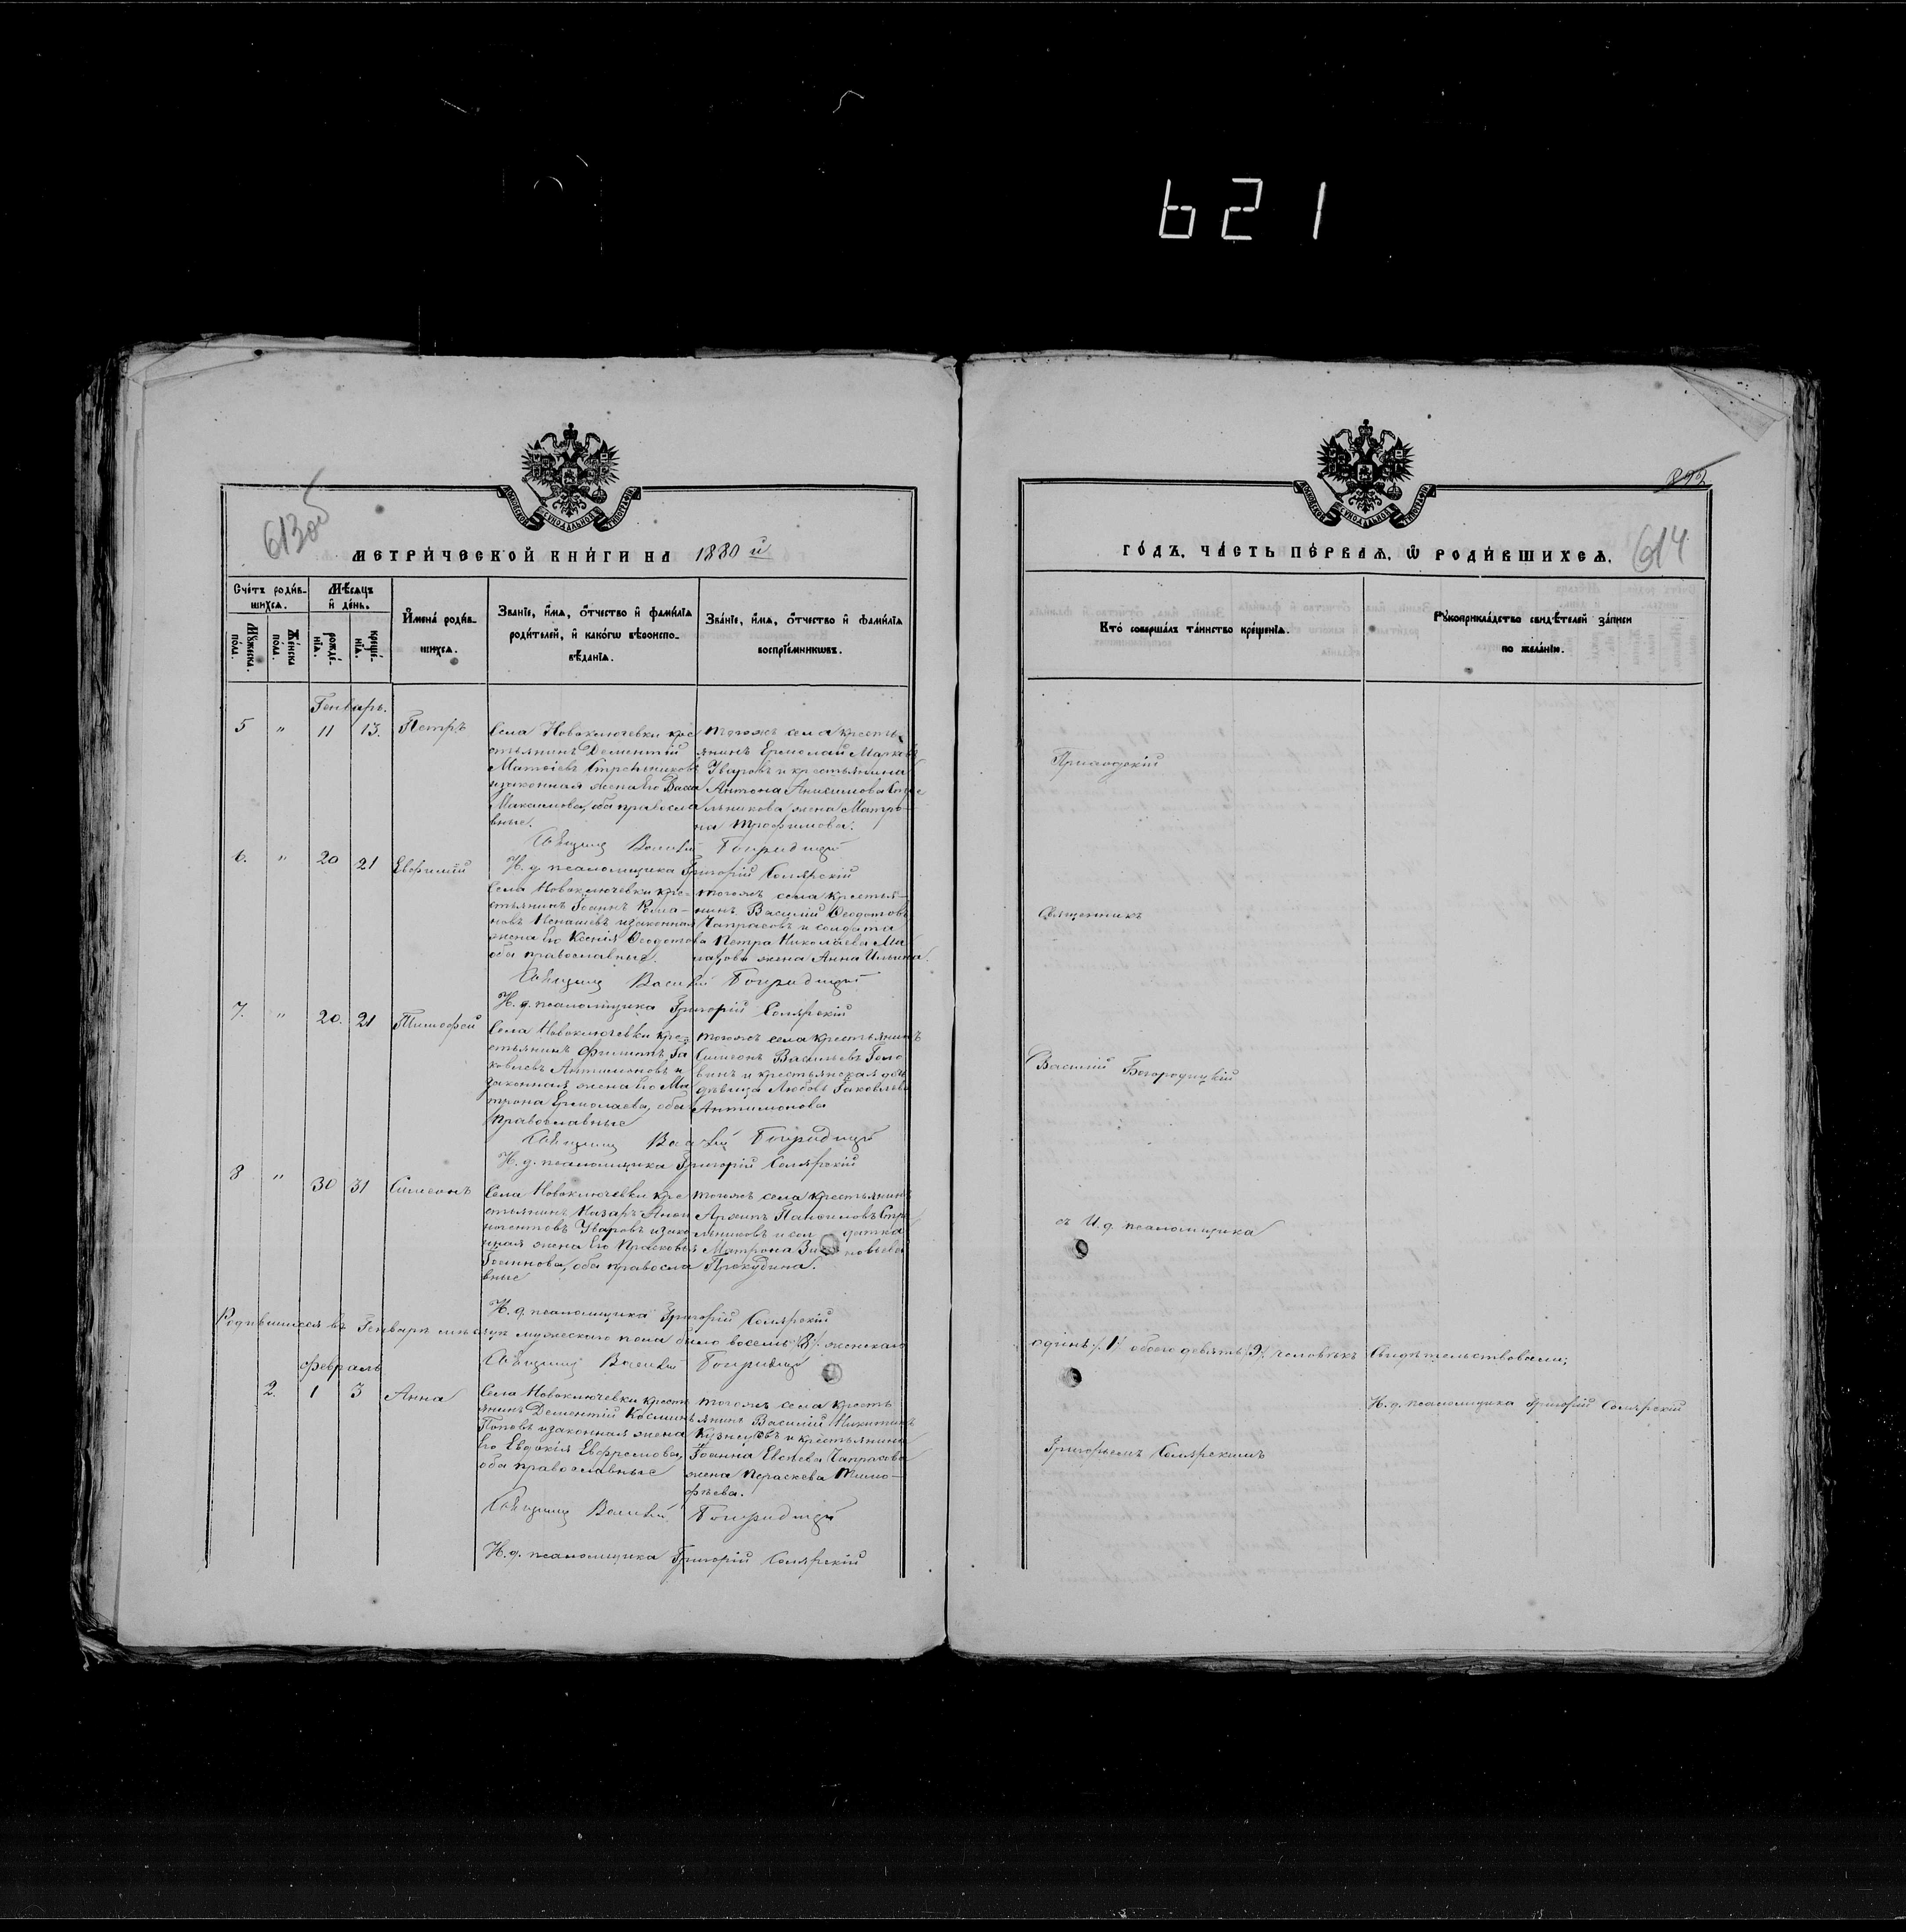 621
613об
МЕТРИЧЕСКОЙ КНИГИ НА 1880й
Счетъ родив-
шихся.
Мѣсяцъ
и день.
Мужеска
пола.
Женска
пола.
рожде-
нія.
креще-
нія.
Имена родив-
шихся.
Званіе, имя, отчество и фамилія
родителей, и какого вѣроиспо-
вѣданія.
Званіе, имя, отчество и фамилія
воспріемниковъ.
Генварь.
5 " 11 13. Петръ
Села Новоключевки кре
стьянинъ Дементій
Матѳіевъ Стрельниковъ
и законная жена его Васса
Максимова, оба правосла
вные.
тогожъ села кресть
янинъ Ермолай Марковъ
Уваровъ и крестьянина
Антона Анисимова Стре
льникова жена Матро-
на Трофимова.
Священникъ Василій Богородицкій
И. д. псаломщика Григорій Солярскій
6. " 20 21 Евфимій
Села Новоключевки кре-
стьянинъ Іоаннъ Рома-
новъ и законная
жена его Ксенія Ѳеодотова
оба православные.
тогожъ села крестья-
нинъ Василій Ѳеодотовъ
Чапрасовъ и солдата
Петра Николаева
жена Анна Ильина.
Священникъ Василій Богородицкій
И. д. псаломщика Григорій Солярскій
7. " 20. 21 Тимофей
Села Новоключевки кре-
стьянинъ Филиппъ Іа
ковлевъ Антимоновъ и
законная жена его Ма
трона Ермолаева, оба
православные
тогожъ села крестьянинъ
Симеонъ Васильевъ Голо
винъ и крестьянская
дѣвица Любовь Іаковлева
Антимонова
Священникъ Василій Богородицкій
И. д. псаломщика Григорій Солярскій
8 " 30 31 Симеонъ
Села Новоключевки кре
стьянинъ Назаръ
Уваровъ и зако
нная жена его Прасковья
Іоаннова, оба правосла
вные
тогожъ села крестьянинъ
Архипъ Панфиловъ Стре
льниковъ и солдатка
Матрона Зиновьева
Прокудина.
И. д. псаломщика Григорій Солярскій
Родившихся въ Генварѣ мѣсяцѣ мужескаго пола было восемь /8/. женскаго
Священникъ Василій Богородицкій
февраль
2. 1 3 Анна
Села Новоключевки кресть
янинъ Дементій Косминъ
Поповъ и законная жена
его Евдокія Евфремова,
оба православные
тогожъ села кресть
янинъ Василій Никитинъ
Кузнецовъ и крестьянина
Іоанна Евсѣева Чапрасова
жена Параскева Тимо-
фѣева.
Священникъ Василій Богородицкій
И. д. псаломщика Григорій Солярскій
614
ГОДЪ, ЧАСТЬ ПЕРВАЯ, Ѿ РОДИВШИХСЯ.
Кто совершалъ таинство крещенія.
Рукоприкладство свидѣтелей записи
по желанію.
Приходскій
Священникъ
Василій Богородицкій
съ И. д. псаломщика
одинъ /1/ обоего девять /9/ человѣкъ Свидѣтельствовали;
И. д. псаломщика Григорій Солярскій
Григорьемъ Солярскимъ